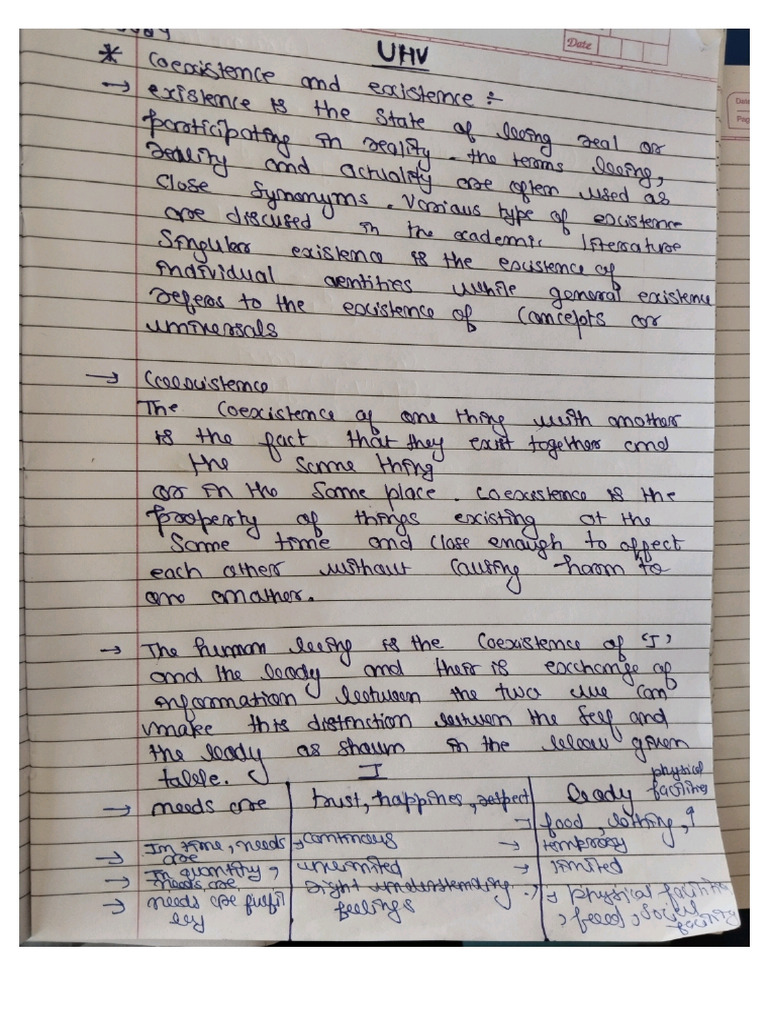 UHV
Date
* Coexistence and existence :-
→ existence is the state of being real or
participating in reality. the terms being,
reality and actuality are often used as
close synonyms. Various type of existence
are discused in the academic literature
Singular existence is the existence of
individual aentities while general existence
refers to the existence of concepts or
universals
→ Coexistence
The coexistence of one thing with another
is the fact that they exist together and
the same thing
or in the same place. coexistence is the
property of things existing at the
same time and close enough to affect
each other without causing harm to
one another.
→ The human being is the coexistence of 'I'
and the body and their is exchange of
information between the two we can
make this distinction between the self and
the body as shown in the below given
table.
I
Body physical facilities
→ needs are
trust, happines, respect
→ food, clothing,
→ In time, needs are
→ continous
→ temprory
→ In quantity, needs are
unlimited
→ limited
→ needs are fulfil by
Right understanding, feelings
→ physical facilities, food,